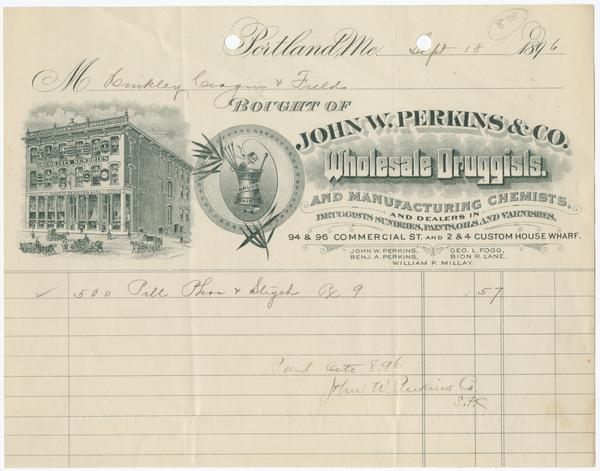 Portland, Me. Sept 18 1896
M Hinkley & Fields
BOUGHT OF
JOHN W. PERKINS & CO.
Wholesale Druggists.
AND MANUFACTURING CHEMISTS,
AND DEALERS IN
DRUGGISTS SUNDRIES, PAINTS, OILS AND VARNISHES,
94 & 96 COMMERCIAL ST. AND 2 & 4 CUSTOM HOUSE WHARF.
JOHN W. PERKINS, GEO. L. FOGG,
BENJ. A. PERKINS, BION R. LANE,
WILLIAM P. MILLAY
DRUGGISTS SUNDRIES
DRUGS
500 Pill Phos & Strych 9 1.57
Paid Octo 8.96
John W. Perkins Co